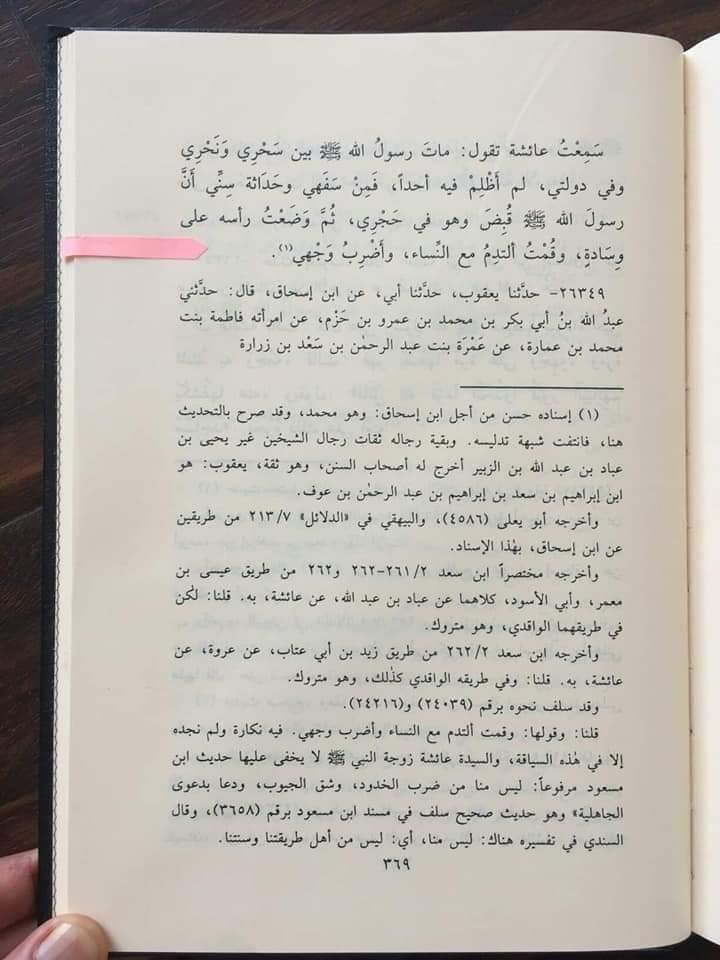 سَمِعْتُ عائشة تقول: ماتَ رسولُ الله ﷺ بين سَحْرِي وَنَحْرِي
وفي دولتي، لم أَظْلِمْ فيه أحداً، فَمِنْ سَفَهي وحَدَاثة سِنِّي أَنَّ
رسولَ الله ﷺ قُبِضَ وهو في حَجْرِي، ثُمَّ وَضَعْتُ رأسه على
وِسَادةٍ، وقُمْتُ ألتدِمُ مع النِّساء، وأَضْرِبُ وَجْهي(١).
٢٦٣٤٩- حدَّثنا يعقوب، حدَّثنا أبي، عن ابن إسحاق، قال: حدَّثني
عبدُ الله بنُ أبي بكر بن محمد بن عمرو بن حَزْم، عن امرأته فاطمة بنت
محمد بن عمارة، عن عَمْرَة بنت عبد الرحمٰن بن سَعْد بن زرارة
(١) إسناده حسن من أجل ابن إسحاق: وهو محمد، وقد صرح بالتحديث
هنا، فانتفت شبهة تدليسه. وبقية رجاله ثقات رجال الشيخين غير يحيى بن
عباد بن عبد الله بن الزبير أخرج له أصحاب السنن، وهو ثقة، يعقوب: هو
ابن إبراهيم بن سعد بن إبراهيم بن عبد الرحمٰن بن عوف.
وأخرجه أبو يعلى (٤٥٨٦)، والبيهقي في «الدلائل» ٢١٣/٧ من طريقين
عن ابن إسحاق، بهٰذا الإسناد.
وأخرجه مختصراً ابن سعد ٢٦١/٢-٢٦٢ و٢٦٢ من طريق عيسى بن
معمر، وأبي الأسود، كلاهما عن عباد بن عبد الله، عن عائشة، به. قلنا: لٰكن
في طريقهما الواقدي، وهو متروك.
وأخرجه ابن سعد ٢٦٢/٢ من طريق زيد بن أبي عتاب، عن عروة، عن
عائشة، به. قلنا: وفي طريقه الواقدي كذٰلك، وهو متروك.
وقد سلف نحوه برقم (٢٤٠٣٩) و(٢٤٢١٦).
قلنا: وقولها: وقمت ألتدم مع النساء وأضرب وجهي. فيه نكارة ولم نجده
إلا في هٰذه السياقة، والسيدة عائشة زوجة النبي ﷺ لا يخفى عليها حديث ابن
مسعود مرفوعاً: ليس منا من ضرب الخدود، وشق الجيوب، ودعا بدعوى
الجاهلية» وهو حديث صحيح سلف في مسند ابن مسعود برقم (٣٦٥٨)، وقال
السندي في تفسيره هناك: ليس منا، أي: ليس من أهل طريقتنا وسنتنا.
٣٦٩